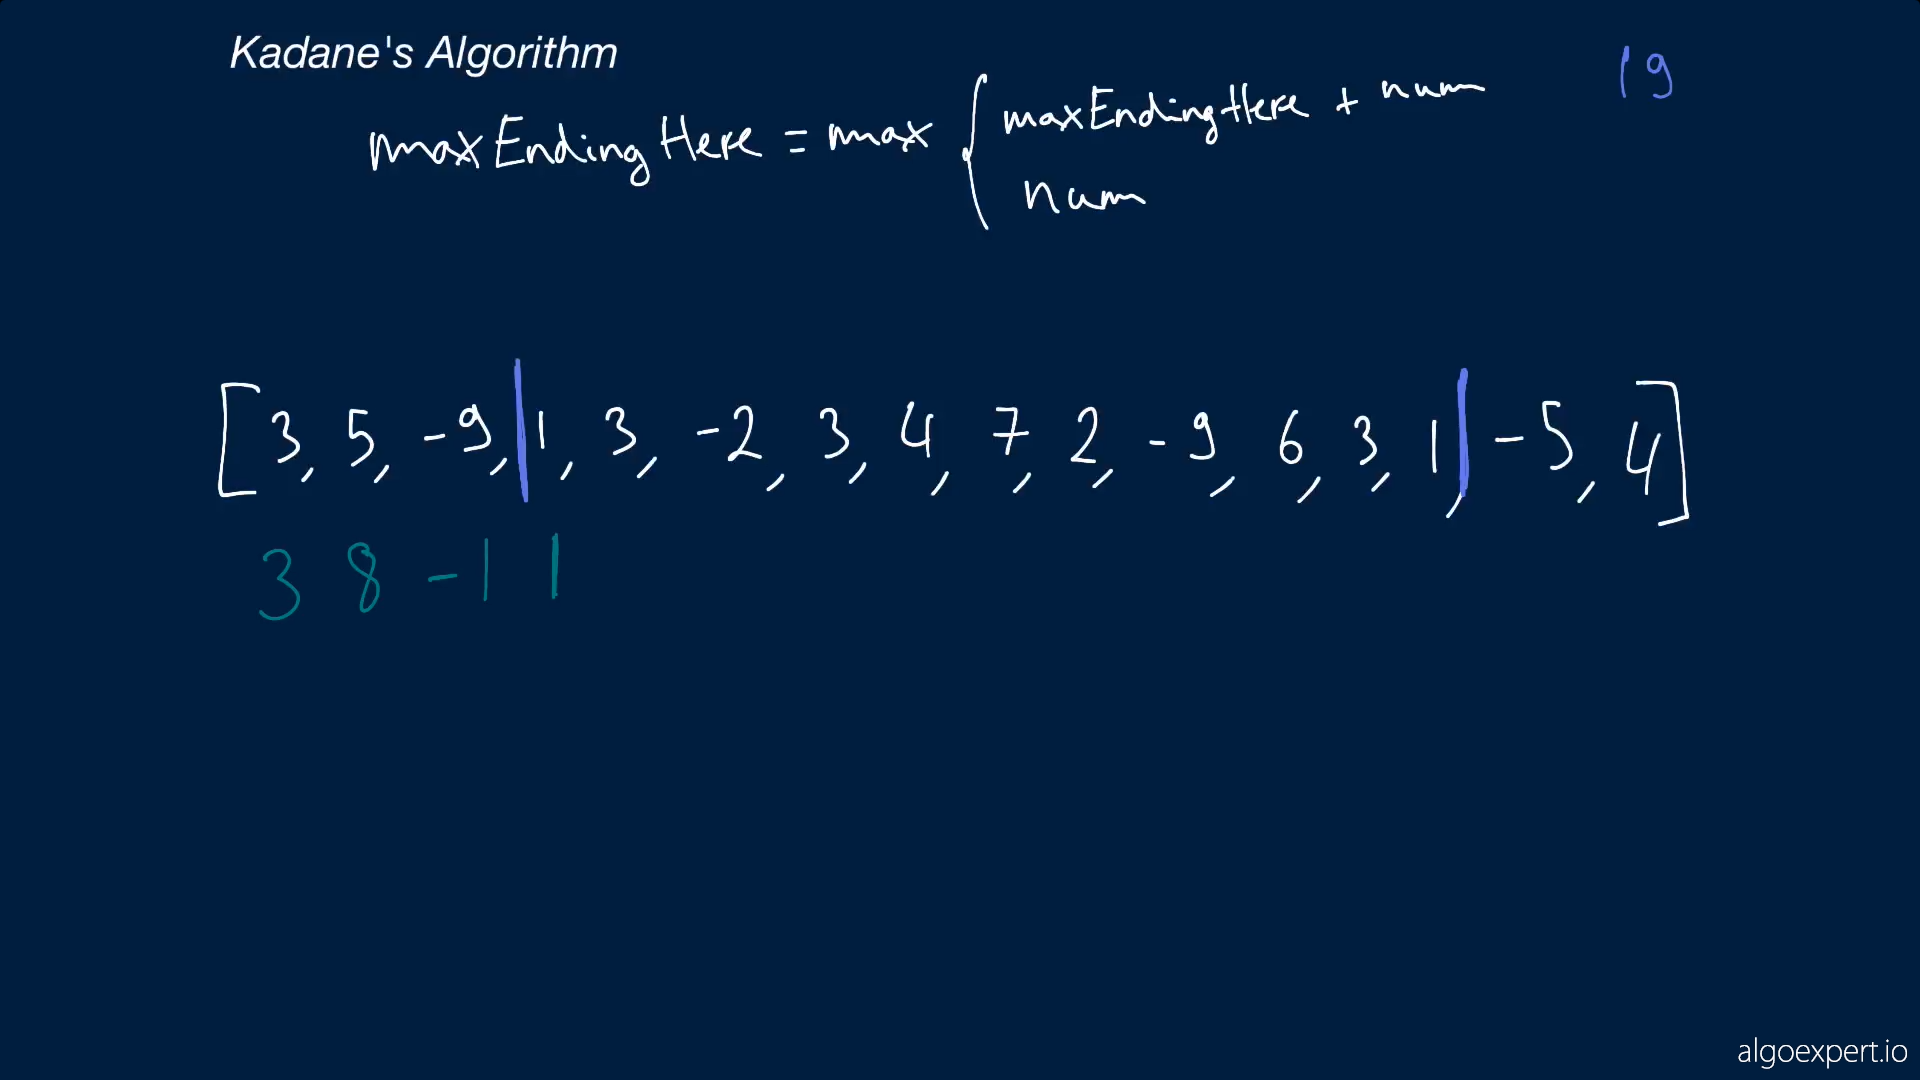 Kadane's Algorithm
19
maxEndingHere = max { maxEndingHere + num
num
[3, 5, -9, 1, 3, -2, 3, 4, 7, 2, -9, 6, 3, 1, -5, 4]
3 8 -1 1
algoexpert.io